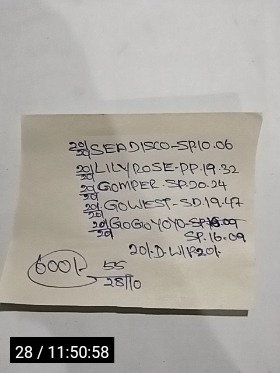 20/20 SEADISCO-SP.10.06
20/20 LILYROSE-PP.19.32
20/20 GOMPER-SP.20.24
20/20 GOWEST-SD.19.47
20/20 GOGOYOYO-SP.16.09
SP.16.09
20/.D.WIP20/.
600/- 55
28/10
28 / 11:50:58